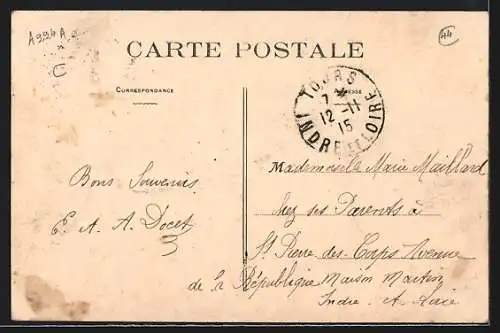 A224A
C
44
CARTE POSTALE
CORRESPONDANCE
ADRESSE
TOURS
7 *
12-11
15
INDRE ET LOIRE
Bons Souvenirs
E. A. A. Docet
Mademoiselle Marie Maillard
chez ses Parents à
St Pierre-des-Corps Avenue
de la République Maison Martin
Indre. et. Loire